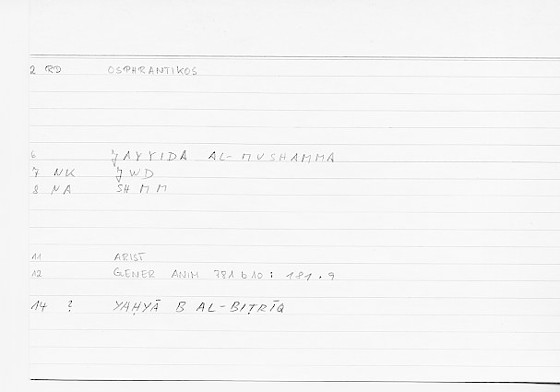 2 RD OSPHRANTIKOS
6 JAYYIDA AL-MUSHAMMA
7 NK JWD
8 NA SHMM
11 ARIST
12 GENER ANIM 781 b 10 : 181 . 9
14 ? YAḤYĀ B AL-BIṬRĪQ